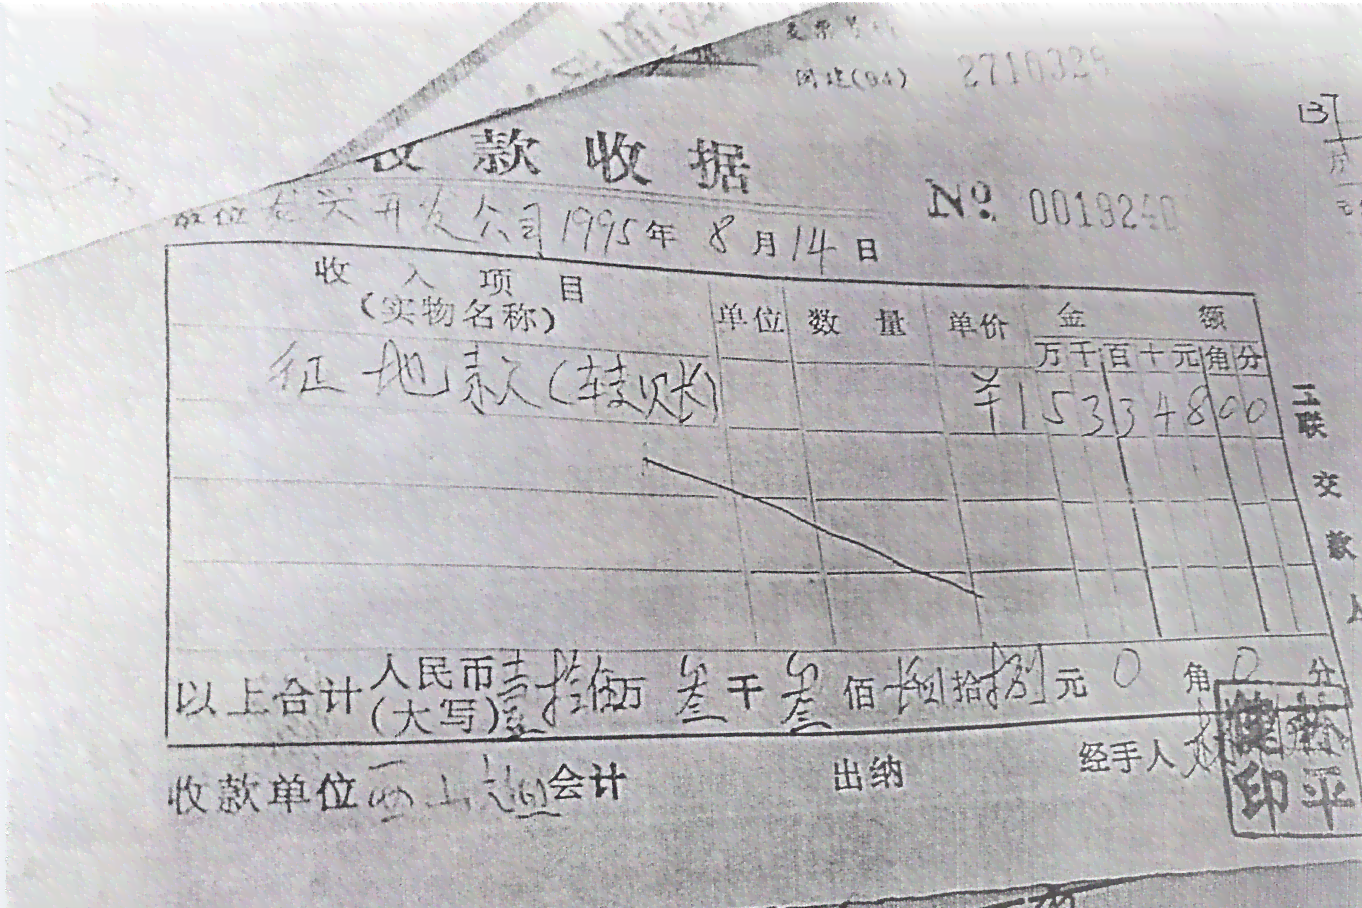 2710329
款收据
No. 0019240
单位 龙兴开发公司 1995年 8月14日
收入项目
(实物名称)
单位 数量 单价 金额
万千百十元角分
征地款(转账) ¥15334800
二联交款人
以上合计 人民币(大写) 壹拾伍万 叁千 叁佰 肆拾捌元 0角 0分
收款单位 西山 会计 出纳 经手人
林健平印